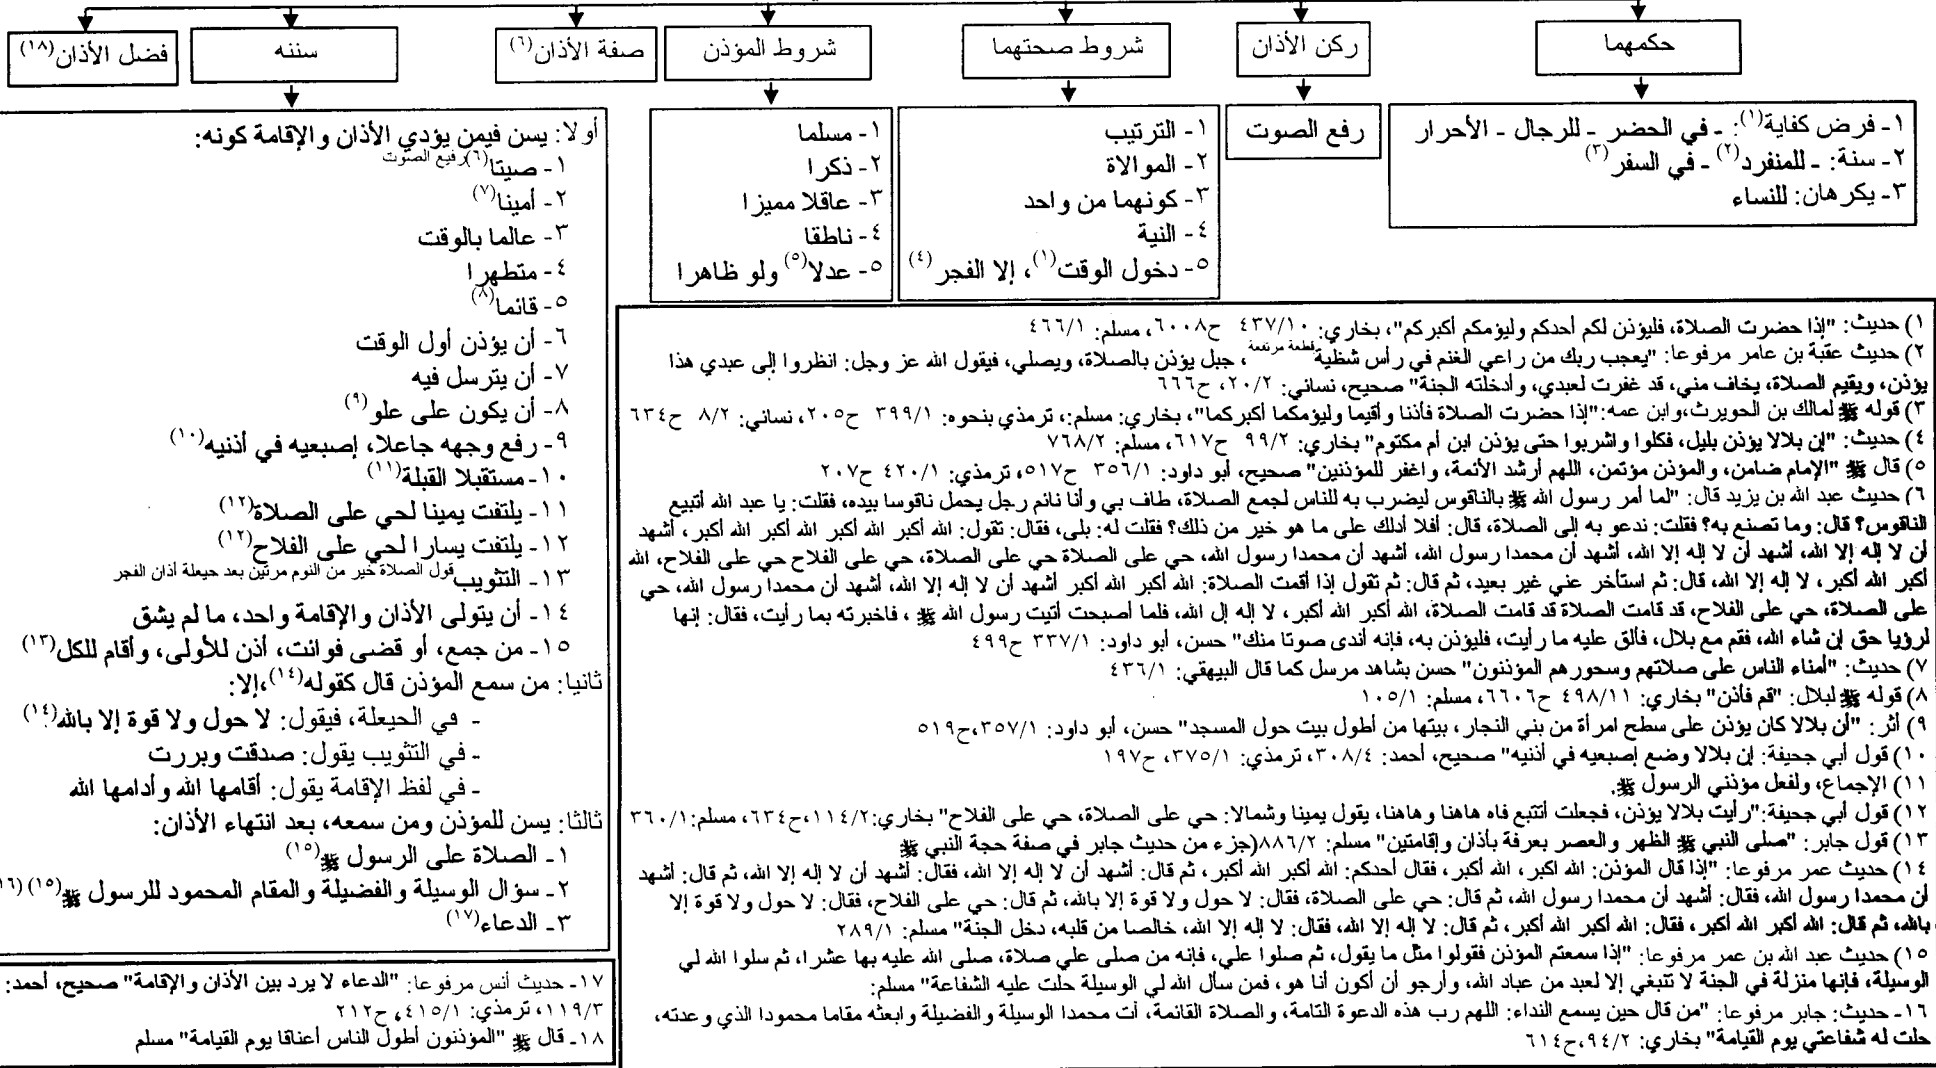 حكمهما
ركن الأذان
شروط صحتهما
شروط المؤذن
صفة الأذان(٦)
سننه
فضل الأذان(١٨)
١- فرض كفاية(١): - في الحضر - للرجال - الأحرار
٢- سنة: - للمنفرد(٢) - في السفر(٣)
٣- يكرهان: للنساء
رفع الصوت
١- الترتيب
٢- الموالاة
٣- كونهما من واحد
٤- النية
٥- دخول الوقت(١)، إلا الفجر(٤)
١- مسلما
٢- ذكرا
٣- عاقلا مميزا
٤- ناطقا
٥- عدلا(٥) ولو ظاهرا
أولا: يسن فيمن يؤدي الأذان والإقامة كونه:
١- صيتا(٦)رفيع الصوت
٢- أمينا(٧)
٣- عالما بالوقت
٤- متطهرا
٥- قائما(٨)
٦- أن يؤذن أول الوقت
٧- أن يترسل فيه
٨- أن يكون على علو(٩)
٩- رفع وجهه جاعلا، إصبعيه في أذنيه(١٠)
١٠- مستقبلا القبلة(١١)
١١- يلتفت يمينا لحي على الصلاة(١٢)
١٢- يلتفت يسارا لحي على الفلاح(١٢)
١٣- التثويب قول الصلاة خير من النوم مرتين بعد حيعلة أذان الفجر
١٤- أن يتولى الأذان والإقامة واحد، ما لم يشق
١٥- من جمع، أو قضى فوائت، أذن للأولى، وأقام للكل(١٣)
ثانيا: من سمع المؤذن قال كقوله(١٤)،إلا:
- في الحيعلة، فيقول: لا حول ولا قوة إلا بالله(١٤)
- في التثويب يقول: صدقت وبررت
- في لفظ الإقامة يقول: أقامها الله وأدامها الله
ثالثا: يسن للمؤذن ومن سمعه، بعد انتهاء الأذان:
١- الصلاة على الرسول ﷺ(١٥)
٢- سؤال الوسيلة والفضيلة والمقام المحمود للرسول ﷺ(١٥)(١٦)
٣- الدعاء(١٧)
١) حديث: "إذا حضرت الصلاة، فليؤذن لكم أحدكم وليؤمكم أكبركم"، بخاري: ٤٣٧/١٠ ح٦٠٠٨، مسلم: ٤٦٦/١
٢) حديث عقبة بن عامر مرفوعا: "يعجب ربك من راعي الغنم في رأس شظية قطعة مرتفعة، جبل يؤذن بالصلاة، ويصلي، فيقول الله عز وجل: انظروا إلى عبدي هذا
يؤذن، ويقيم الصلاة، يخاف مني، قد غفرت لعبدي، وأدخلته الجنة" صحيح، نسائي: ٢٠/٢، ح٦٦٦
٣) قوله ﷺ لمالك بن الحويرث،وابن عمه:"إذا حضرت الصلاة فأذنا وأقيما وليؤمكما أكبركما"، بخاري: مسلم:، ترمذي بنحوه: ٣٩٩/١ ح٢٠٥، نسائي: ٨/٢ ح٦٣٤
٤) حديث: "إن بلالا يؤذن بليل، فكلوا واشربوا حتى يؤذن ابن أم مكتوم" بخاري: ٩٩/٢ ح٦١٧، مسلم: ٧٦٨/٢
٥) قال ﷺ "الإمام ضامن، والمؤذن مؤتمن، اللهم أرشد الأئمة، واغفر للمؤذنين" صحيح، أبو داود: ٣٥٦/١ ح٥١٧، ترمذي: ٤٢٠/١ ح٢٠٧
٦) حديث عبد الله بن يزيد قال: "لما أمر رسول الله ﷺ بالناقوس ليضرب به للناس لجمع الصلاة، طاف بي وأنا نائم رجل يحمل ناقوسا بيده، فقلت: يا عبد الله أتبيع
الناقوس؟ قال: وما تصنع به؟ فقلت: ندعو به إلى الصلاة، قال: أفلا أدلك على ما هو خير من ذلك؟ فقلت له: بلى، فقال: تقول: الله أكبر الله أكبر الله أكبر الله أكبر، أشهد
أن لا إله إلا الله، أشهد أن لا إله إلا الله، أشهد أن محمدا رسول الله، أشهد أن محمدا رسول الله، حي على الصلاة حي على الصلاة، حي على الفلاح حي على الفلاح، الله
أكبر الله أكبر، لا إله إلا الله، قال: ثم استأخر عني غير بعيد، ثم قال: ثم تقول إذا أقمت الصلاة: الله أكبر الله أكبر أشهد أن لا إله إلا الله، أشهد أن محمدا رسول الله، حي
على الصلاة، حي على الفلاح، قد قامت الصلاة قد قامت الصلاة، الله أكبر الله أكبر، لا إله إل الله، فلما أصبحت أتيت رسول الله ﷺ ، فاخبرته بما رأيت، فقال: إنها
لرؤيا حق إن شاء الله، فقم مع بلال، فألق عليه ما رأيت، فليؤذن به، فإنه أندى صوتا منك" حسن، أبو داود: ٣٣٧/١ ح٤٩٩
٧) حديث: "أمناء الناس على صلاتهم وسحورهم المؤذنون" حسن بشاهد مرسل كما قال البيهقي: ٤٣٦/١
٨) قوله ﷺ لبلال: "قم فأذن" بخاري: ٤٩٨/١١ ح٦٦٠٦، مسلم: ١٠٥/١
٩) أثر: "أن بلالا كان يؤذن على سطح امرأة من بني النجار، بيتها من أطول بيت حول المسجد" حسن، أبو داود: ٣٥٧/١،ح٥١٩
١٠) قول أبي جحيفة: إن بلالا وضع إصبعيه في أذنيه" صحيح، أحمد: ٣٠٨/٤، ترمذي: ٣٧٥/١، ح١٩٧
١١) الإجماع، ولفعل مؤذني الرسول ﷺ.
١٢) قول أبي جحيفة:"رأيت بلالا يؤذن، فجعلت أتتبع فاه هاهنا وهاهنا، يقول يمينا وشمالا: حي على الصلاة، حي على الفلاح" بخاري:١١٤/٢،ح٦٣٤، مسلم:٣٦٠/١
١٣) قول جابر: "صلى النبي ﷺ الظهر والعصر بعرفة بأذان وإقامتين" مسلم: ٨٨٦/٢(جزء من حديث جابر في صفة حجة النبي ﷺ
١٤) حديث عمر مرفوعا: "إذا قال المؤذن: الله اكبر، الله أكبر، فقال أحدكم: الله أكبر الله أكبر، ثم قال: أشهد أن لا إله إلا الله، فقال: أشهد أن لا إله إلا الله، ثم قال: أشهد
أن محمدا رسول الله، فقال: أشهد أن محمدا رسول الله، ثم قال: حي على الصلاة، فقال: لا حول ولا قوة إلا بالله، ثم قال: حي على الفلاح، فقال: لا حول ولا قوة إلا
بالله، ثم قال: الله أكبر الله أكبر، فقال: الله أكبر الله أكبر، ثم قال: لا إله إلا الله، فقال: لا إله إلا الله، خالصا من قلبه، دخل الجنة" مسلم: ٢٨٩/١
١٥) حديث عبد الله بن عمر مرفوعا: "إذا سمعتم المؤذن فقولوا مثل ما يقول، ثم صلوا علي، فإنه من صلى علي صلاة، صلى الله عليه بها عشرا، ثم سلوا الله لي
الوسيلة، فإنها منزلة في الجنة لا تنبغي إلا لعبد من عباد الله، وأرجو أن أكون أنا هو، فمن سأل الله لي الوسيلة حلت عليه الشفاعة" مسلم:
١٦- حديث: جابر مرفوعا: "من قال حين يسمع النداء: اللهم رب هذه الدعوة التامة، والصلاة القائمة، آت محمدا الوسيلة والفضيلة وابعثه مقاما محمودا الذي وعدته،
حلت له شفاعتي يوم القيامة" بخاري: ٩٤/٢،ح٦١٤
١٧- حديث أنس مرفوعا: "الدعاء لا يرد بين الأذان والإقامة" صحيح، أحمد:
١١٩/٣، ترمذي: ٤١٥/١، ح٢١٢
١٨- قال ﷺ "المؤذنون أطول الناس أعناقا يوم القيامة" مسلم